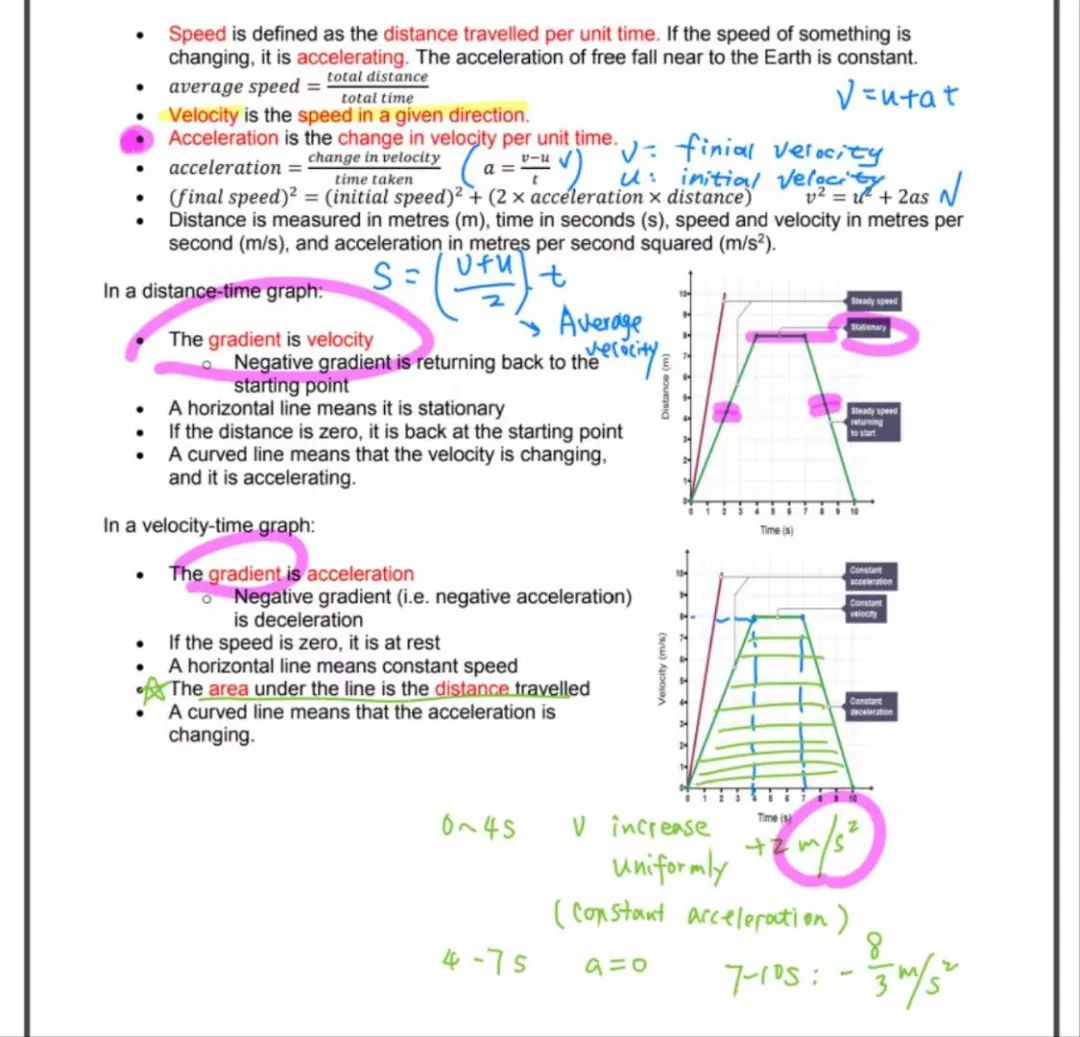 • Speed is defined as the distance travelled per unit time. If the speed of something is
changing, it is accelerating. The acceleration of free fall near to the Earth is constant.
• average speed = total distance / total time
V = u + a t
• Velocity is the speed in a given direction.
• Acceleration is the change in velocity per unit time.
V = finial velocity
• acceleration = change in velocity / time taken ( a = v−u / t √ )
u: initial velocity
• (final speed)² = (initial speed)² + (2 × acceleration × distance) v² = u² + 2as √
• Distance is measured in metres (m), time in seconds (s), speed and velocity in metres per
second (m/s), and acceleration in metres per second squared (m/s²).
S = ( V+u / 2 ) · t
→ Average
velocity
In a distance-time graph:
• The gradient is velocity
o Negative gradient is returning back to the
starting point
• A horizontal line means it is stationary
• If the distance is zero, it is back at the starting point
• A curved line means that the velocity is changing,
and it is accelerating.
Distance (m)
10
9
8
7
6
5
4
3
2
1
0
0 1 2 3 4 5 6 7 8 9 10
Time (s)
Steady speed
Stationary
Steady speed
returning
to start
In a velocity-time graph:
• The gradient is acceleration
o Negative gradient (i.e. negative acceleration)
is deceleration
• If the speed is zero, it is at rest
• A horizontal line means constant speed
• The area under the line is the distance travelled
• A curved line means that the acceleration is
changing.
Velocity (m/s)
10
9
8
7
6
5
4
3
2
1
0
0 1 2 3 4 5 6 7 8 9 10
Time (s)
Constant
acceleration
Constant
velocity
Constant
deceleration
0~4s V increase +2 m/s²
uniformly
(constant acceleration)
4-7s a=0 7-10s: - 8/3 m/s²